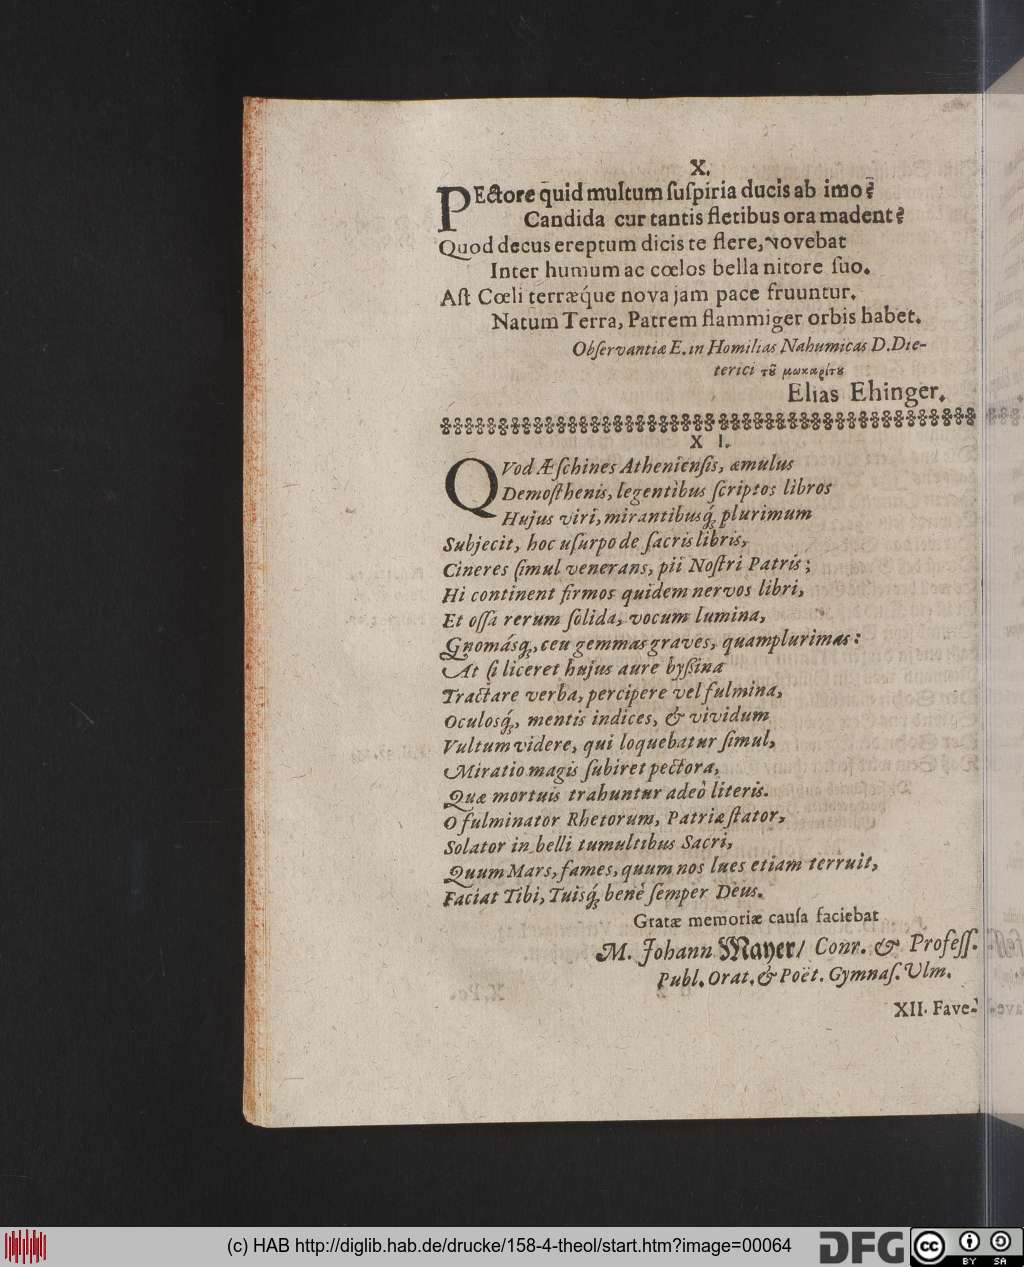 X.
PEctore q̃uid multum ſuſpiria ducis ab imo?
Candida cur tantis fletibus ora madent?
Quod decus ereptum dicis te flere, novebat
Inter humum ac cœlos bella nitore ſuo.
Aſt Cœli terræq́ue nova jam pace fruuntur.
Natum Terra, Patrem flammiger orbis habet.
Obſervantiæ E. in Homilias Nahumicas D. Die-
terici τȣ͂ μακαρίτȣ
Elias Ehinger.
XI.
QVod Æſchines Athenienſis, æmulus
Demoſthenis, legentibus ſcriptos libros
Hujus viri, mirantibusq́; plurimum
Subjecit, hoc uſurpo de ſacris libris,
Cineres ſimul venerans, pii Noſtri Patris;
Hi continent firmos quidem nervos libri,
Et oſſa rerum ſolida, vocum lumina,
Gnomásq́;, ceu gemmas graves, quamplurimas:
At ſi liceret hujus aure byßina
Tractare verba, percipere vel fulmina,
Oculosq́;, mentis indices, & vividum
Vultum videre, qui loquebatur ſimul,
Miratio magis ſubiret pectora,
Quæ mortuis trahuntur adeò literis.
O fulminator Rhetorum, Patriæ ſtator,
Solator in belli tumultibus Sacri,
Quum Mars, fames, quum nos lues etiam terruit,
Faciat Tibi, Tuisq́; benè ſemper Deus.
Gratæ memoriæ cauſa faciebat
M. Johann Mayer/ Conr. & Profeſſ.
Publ. Orat. & Poët. Gymnaſ. Ulm.
XII. Fave-
(c) HAB http://diglib.hab.de/drucke/158-4-theol/start.htm?image=00064
DFG
cc BY SA